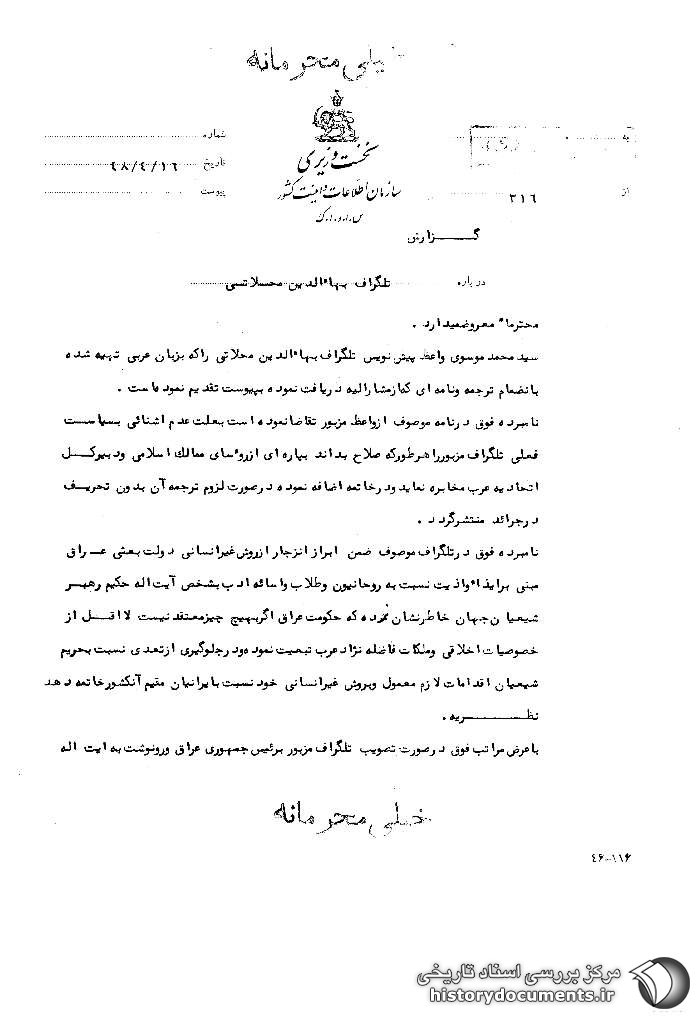 خیلی محرمانه
نخست وزیری
سازمان اطلاعات و امنیت کشور
س.ا.و.ا.ک
به
از ۳۱۶
شماره
تاریخ ۴۸/۴/۱۶
پیوست
گزارش
درباره تلگراف بهاءالدین محلاتی
محترماً معروضمیدارد .
سید محمد موسوی واعظ پیش نویس تلگراف بهاءالدین محلاتی راکه بزبان عربی تهیه شده
بانضمام ترجمه ونامه ای که ازمشارالیه دریافت نموده بپیوست تقدیم نموده است .
نامبرده فوق درنامه موصوف ازواعظ مزبور تقاضانموده است بعلت عدم اشنائی بسیاست
فعلی تلگراف مزبوررا هرطورکه صلاح بداند بپاره ای ازروسای ممالک اسلامی ودبیرکل
اتحادیه عرب مخابره نماید ودرخاتمه اضافه نموده درصورت لزوم ترجمه آن بدون تحریف
درجرائد منتشرگردد .
نامبرده فوق درتلگراف موصوف ضمن ابراز انزجار ازروش غیرانسانی دولت بعثی عراق
مبنی برایذاء واذیت نسبت به روحانیون وطلاب واسائه ادب بشخص آیت اله حکیم رهبر
شیعیان جهان خاطرنشان نموده که حکومت عراق اگربهیچ چیزمعتقد نیست لااقل از
خصوصیات اخلاقی وملکات فاضله نژاد عرب تبعیت نموده ودرجلوگیری ازتعدی نسبت بحریم
شیعیان اقدامات لازم معمول وبروش غیرانسانی خود نسبت بایرانیان مقیم آنکشورخاتمه دهد
نظریه .
باعرض مراتب فوق درصورت تصویب تلگراف مزبور برئیس جمهوری عراق ورونوشت به ایت اله
خیلی محرمانه
۴۶-۱۱۶
مرکز بررسی اسناد تاریخی
historydocuments.ir